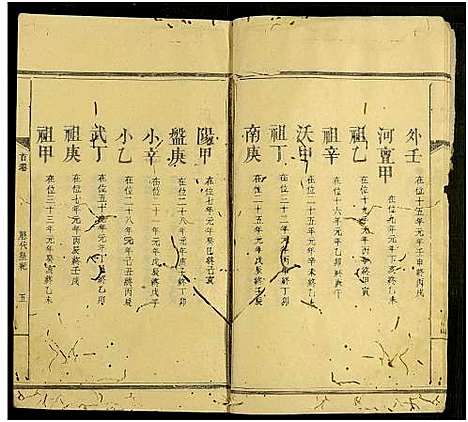 外壬 在位十五年元年壬申終丙戌
河亶甲 在位九年元年丁亥終乙未
祖乙 在位十九年元年丙申終甲寅
祖辛 在位十六年元年乙卯終庚午
沃甲 在位二十五年元年辛未終乙未
祖丁 在位三十二年元年丙申終丁卯
南庚 在位二十五年元年戊辰終壬辰
陽甲 在位七年元年癸巳終己亥
盤庚 在位二十八年元年庚子終丁卯
小辛 在位二十一年元年戊辰終戊子
小乙 在位二十八年元年己丑終丙辰
武丁 在位五十九年元年丁巳終乙卯
祖庚 在位七年元年丙辰終壬戌
祖甲 在位三十三年元年癸亥終乙未
首卷
歷代
五